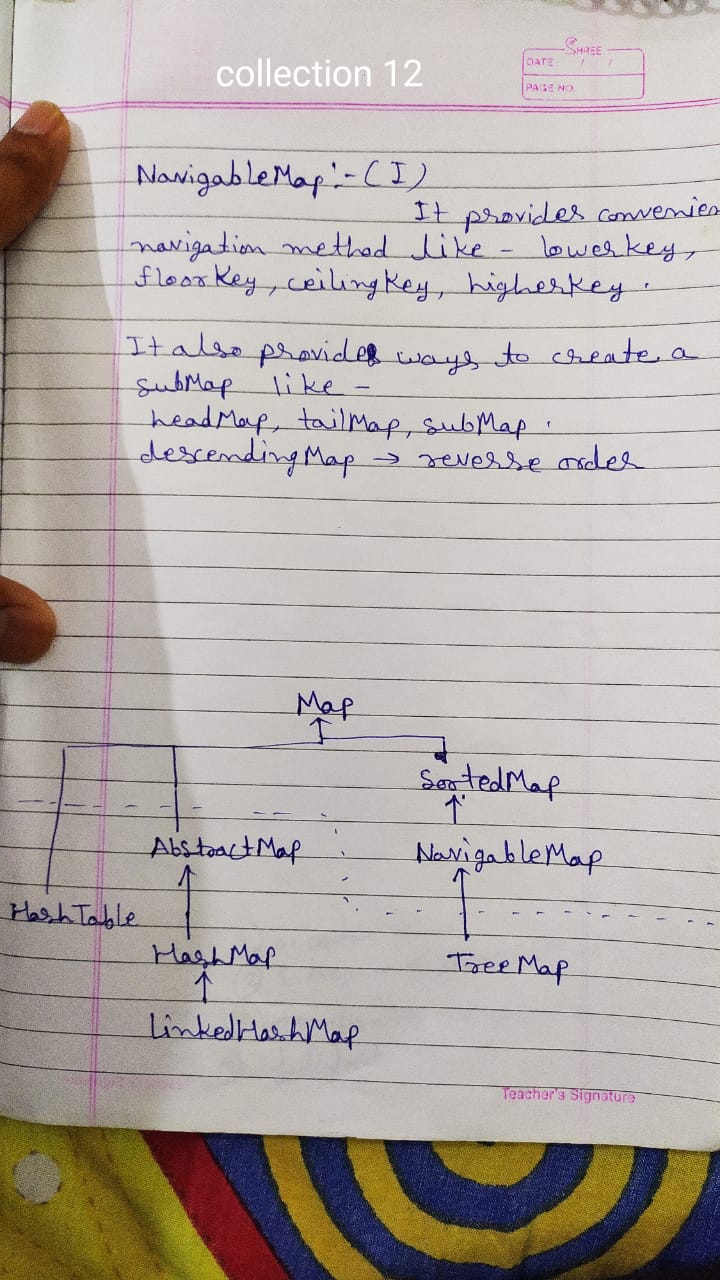 collection 12
SHREE
DATE: / /
PAGE NO.
NavigableMap :- ( I )
It provides convenien
navigation method like - lowerkey,
floorKey, ceilingKey, higherkey.
It also provides ways to create a
subMap like -
headMap, tailMap, subMap.
descendingMap → reverse order
Map
SortedMap
AbstractMap NavigableMap
HashTable
HashMap TreeMap
LinkedHashMap
Teacher's Signature